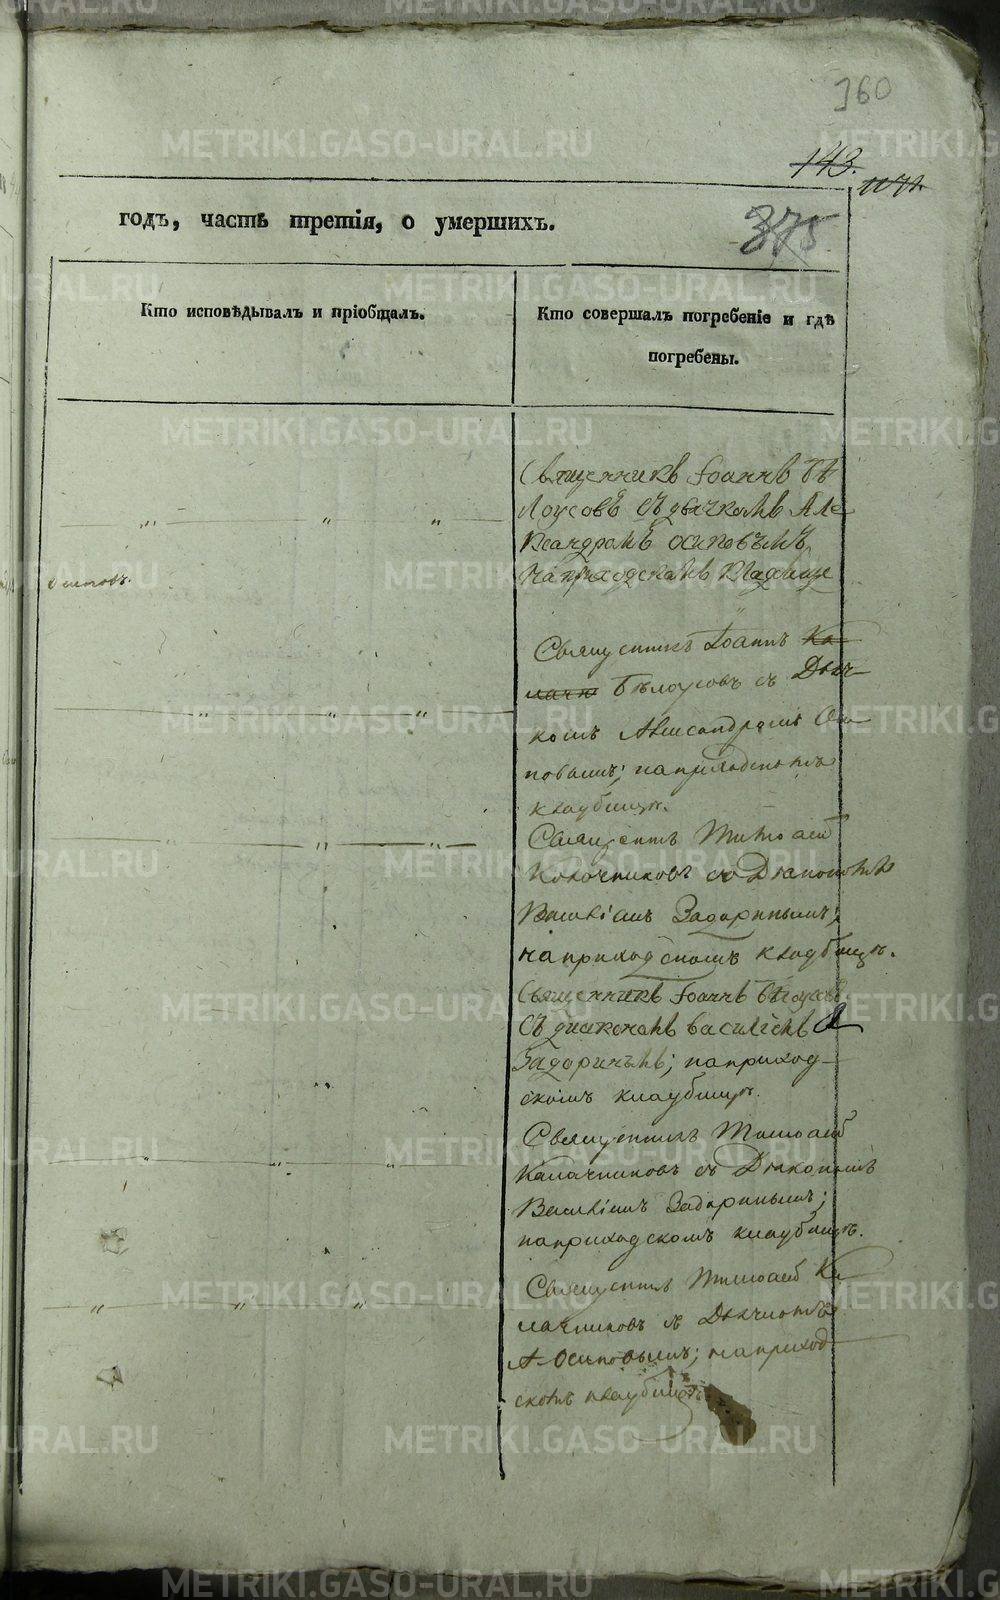 360
143.
375
годъ, часть третія, о умершихъ.
Кто исповѣдывалъ и пріобщалъ.
Кто совершалъ погребеніе и гдѣ
погребены.
Священникъ Іоаннъ Бѣ
лоусовъ съ дьячкомъ Але
ксандромъ Осиповымъ,
на приходскомъ кладбище
Священникъ Іоаннъ Ка
лачн Бѣлоусовъ съ Дьяч-
комъ Александромъ Оси
повымъ; на приходскомъ
кладбищѣ.
Священникъ Тимоѳей
Колочниковъ со Діакономъ
Василіемъ Задоринымъ;
на приходскомъ кладбищѣ.
Священникъ Іоаннъ Бѣлоусовъ
съ диакономъ Василіемъ
Задоринымъ; на приход-
скомъ кладбищѣ.
Священникъ Тимоѳей
Калачниковъ съ Діакономъ
Василіемъ Задоринымъ;
на приходскомъ кладбищѣ.
Священникъ Тимоѳей Ка
лачниковъ съ Дьячкомъ
А. Осиповымъ; на приход
скомъ кладбищѣ.
METRIKI.GASO-URAL.RU